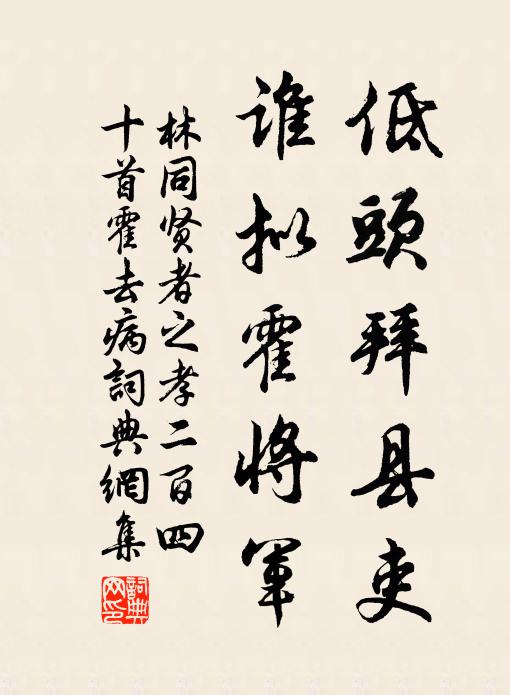 低頭拜县吏
谁拟霍将军
林同贤者之孝二百四
十首霍去病詞典網集
詞典网印